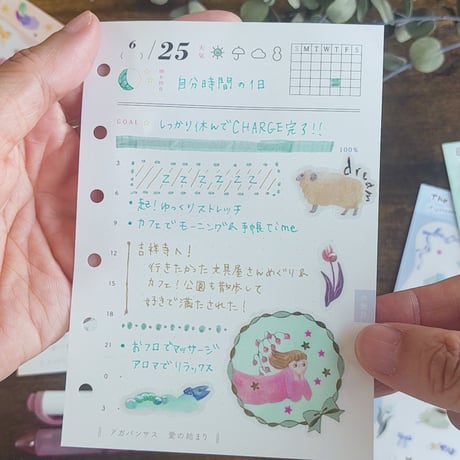 (6)/25 天気
S M T W T F S
memo
自分時間の日
GOAL しっかり休んでCHARGE完了!!
100%
3
Z Z Z Z Z Z Z
dream
6
•起!ゆっくりストレッチ
•カフェでモーニング&手帳time
9
12
吉祥寺へ!
行きたかった文具屋さんめぐり&
カフェ!公園も散歩して
好きで満たされた!
15
18
21
•おフロでマッサージ
アロマでリラックス
0
3
アガパンサス 愛の始まり
The